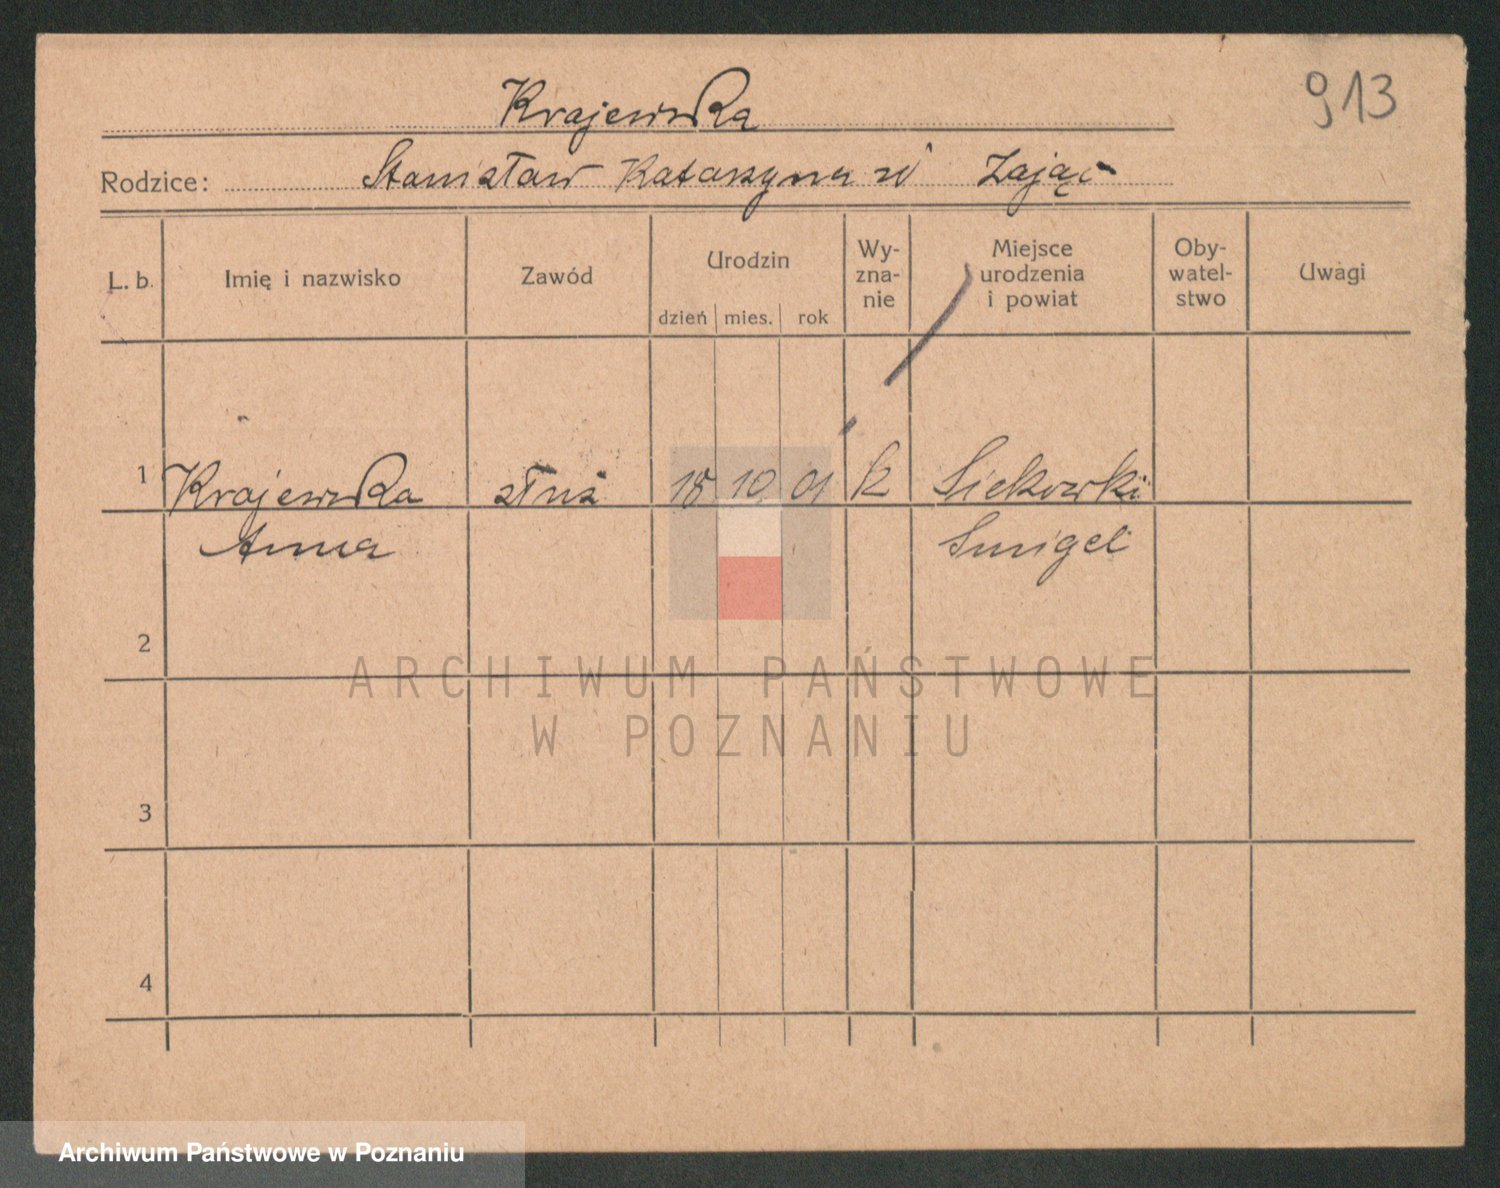 913
Krajewska
Rodzice: Stanisław Katarzyna z Zając
L. b. Imię i nazwisko Zawód Urodzin dzień mies. rok Wy-zna-nie Miejsce urodzenia i powiat Oby-watel-stwo Uwagi
1 Krajewska służ 18 10 01 k Siekowki
Anna Smigel
2
ARCHIWUM PAŃSTWOWE
W POZNANIU
3
4
Archiwum Państwowe w Poznaniu